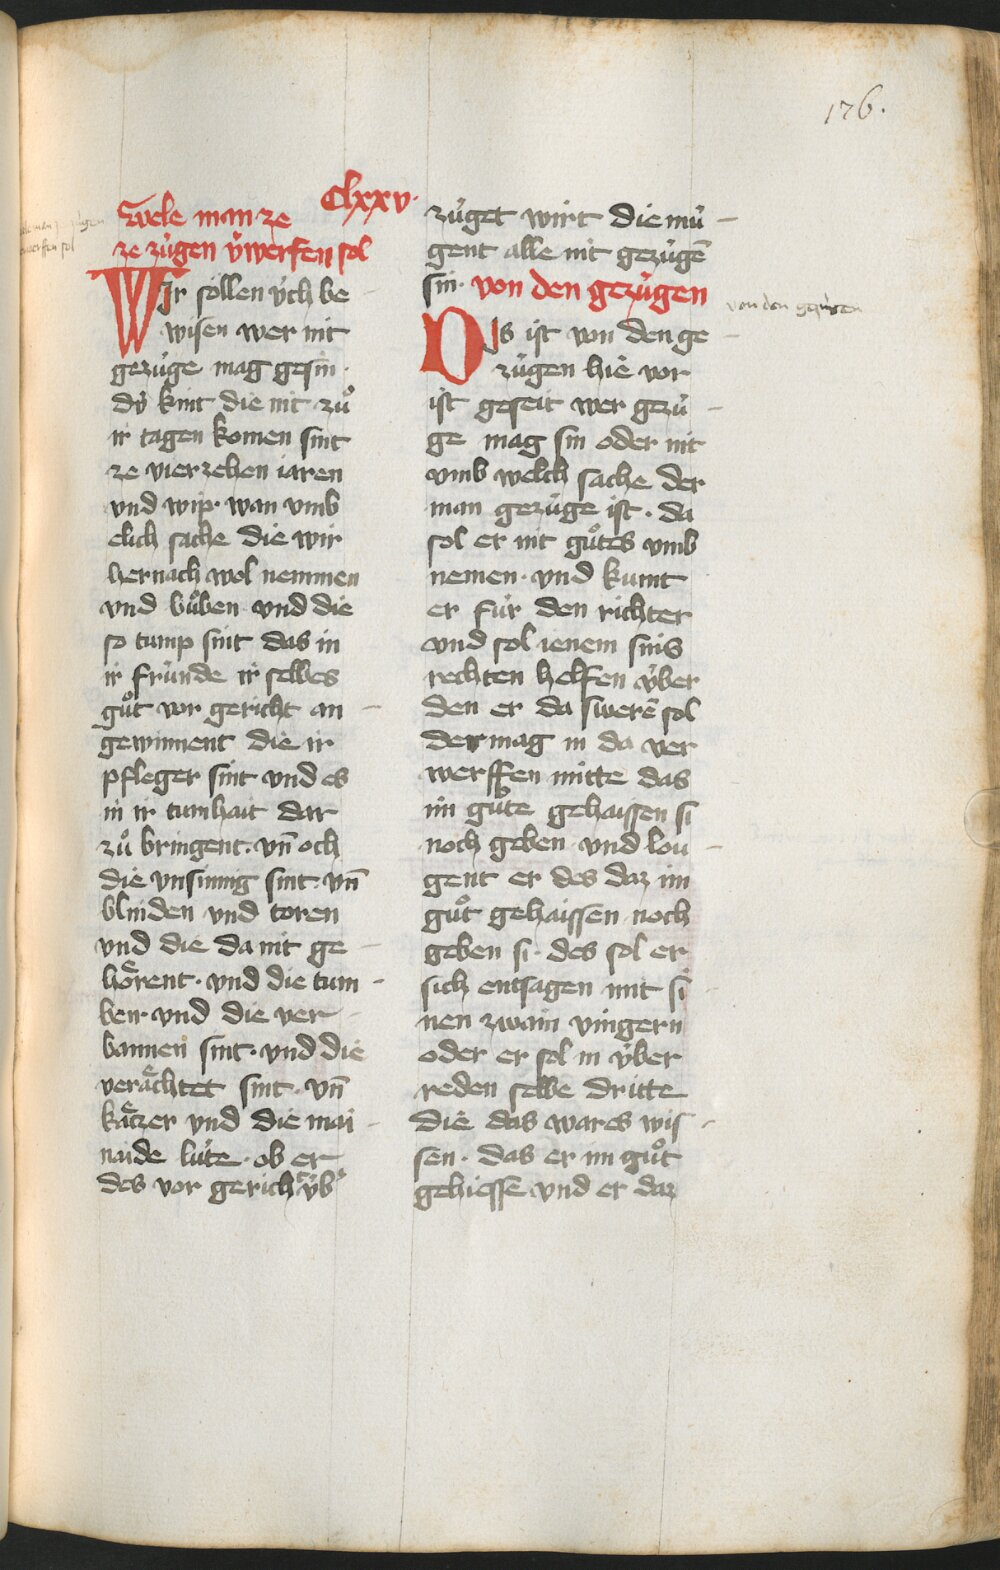 176.
Clxxv.
Wele man ze
ze zu̍gen v̍werfen sol
WIr söllen v̍ch be
wisen wer nit
gezu̍ge mag gesin.
dv̍ kint die nit zuͦ
ir tagen komen sint
ze vierzehen iaren
vnd wip. wan vmb
elich sache die wir
hernach wol nemmen
vnd buͦben vnd die
so tump sint das in
ir fru̍nde ir selbes
guͦt vor gericht an
gewinnent die ir
pfleger sint vnd es
in ir tumhait dar
zuͦ bringent. vn̄ och
die vnsinnig sint. vn̄
blinden vnd toren
vnd die da nit ge
hoͤrent. vnd die tum
ben vnd die ver
bannen sint. vnd die
veraͤchtet sint. vn̄
kaͤtzer vnd die mai
naide lu̍te. ob er
des vor gericht v̍b'
zu̍get wirt die mu̍
gent alle nit gezu̍gē
sin. von den gezu̍gen
von den gezu̍gen
DIs ist von den ge
zu̍gen hie vor
ist geseit wer gezu̍
ge mag sin oder nit
vmb welch sache der
man gezu̍ge ist. da
sol er nit guͦtes vmb
nemen. vnd kumt
er fu̍r den richter
vnd sol ienem sins
rechten helfen v̍ber
den er da swerē sol
der mag in da ver
werffen mitte das
im guͦte gehaissen si
noch geben vnd lou
gent er des daz im
guͦt gehaissen noch
geben si. des sol er
sich entsagen mit si
nen zwain vingern
oder er sol in v̍ber
reden selbe dritte
die das wares wis
sen. das er im guͦt
gehiesse vnd er daz